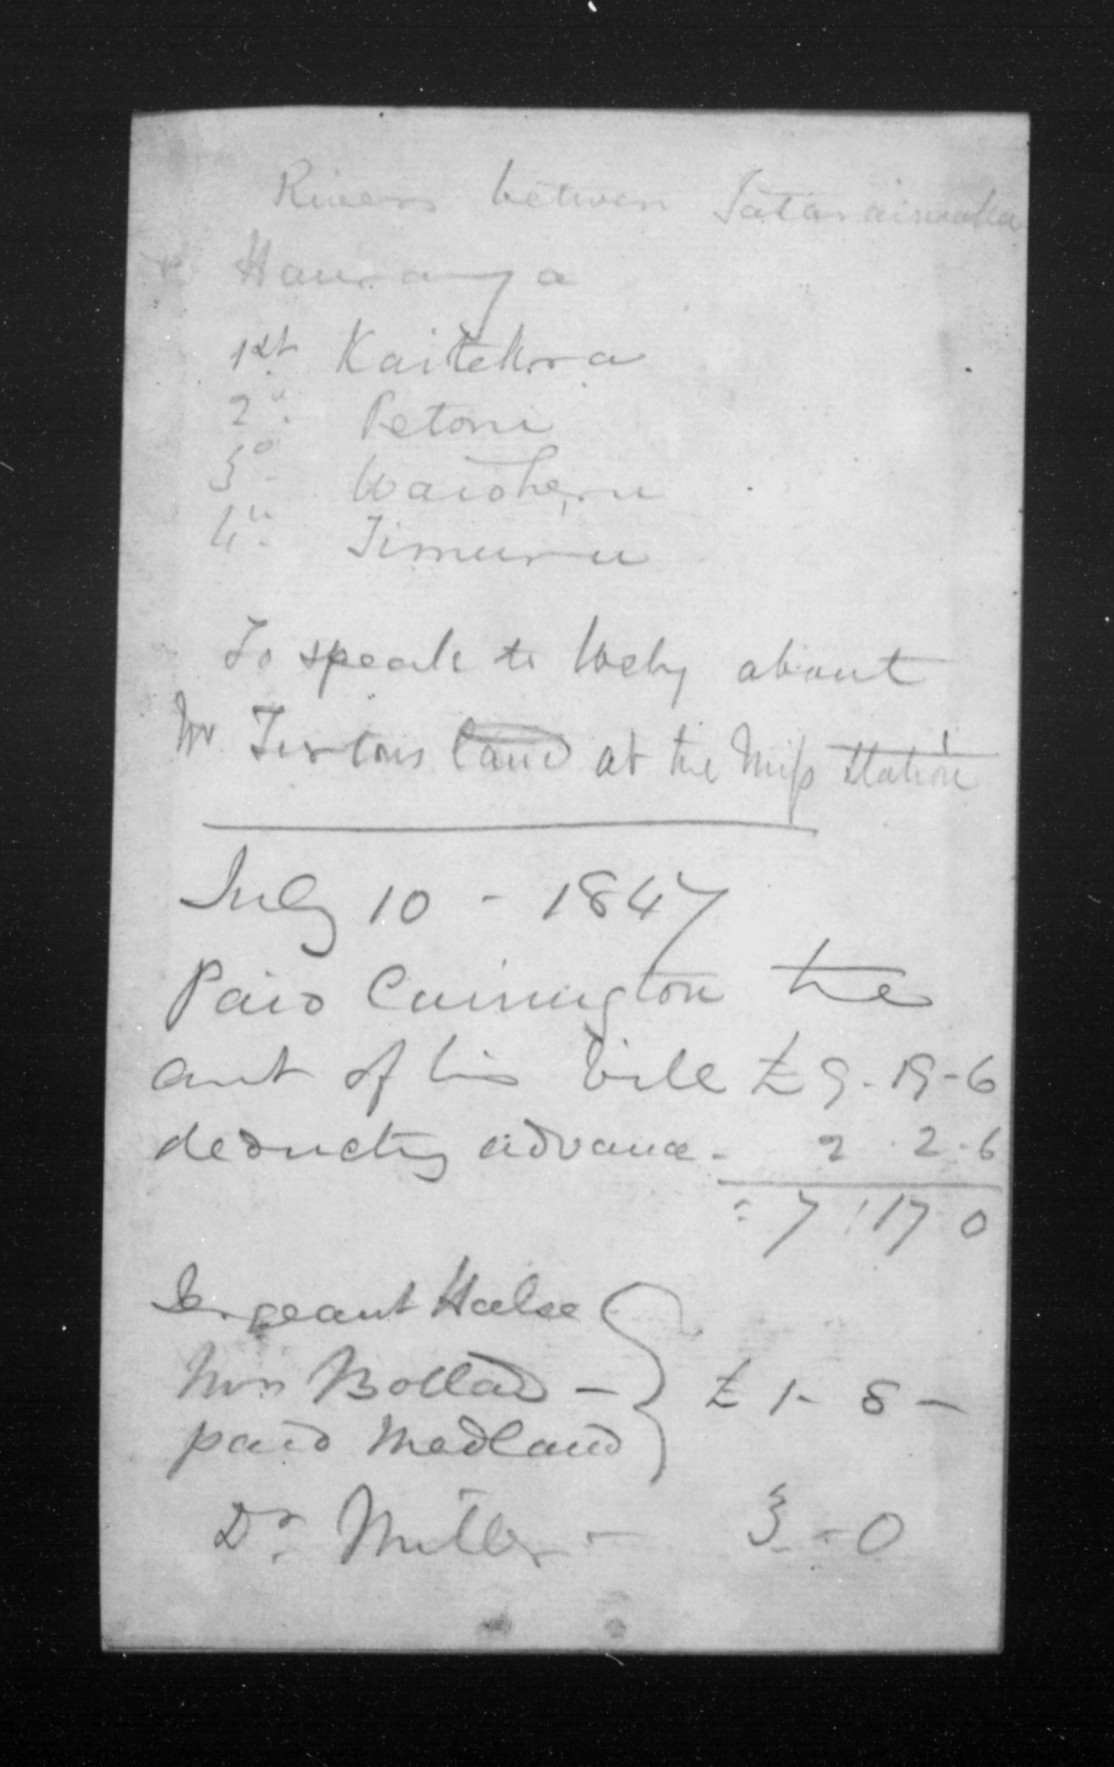 Rivers between Tataraimaka
& Hauranga
1st Kaitehra
2d. Petone
3d. Waioheru
4th. Timuru
To speak to Weky about
Mr Turtons land at the Miss Station
July 10 - 1847
Paid Carrington the
amt of his bill £9-19-6
deducting advance - 2 . 2-6
7 : 17 0
Sergeant Halse
Mrs Bollard -
paid Medland
£ 1 - 8 -
Dr. Miller - 3 - 0